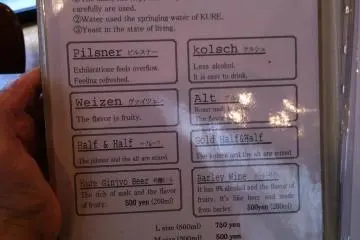 carefully are used.
②Water used the springing water of KURE.
③Yeast in the state of living.
Pilsner ピルスナー
Exhilarations feels overflow.
Feeling refreshed.
kolsch ケルシュ
Less alcohol.
It is easy to drink.
Weizen ヴァイツェン
The flavor is fruity.
Alt アル
The flavor
Half & Half
The pilsner and the alt are mixed
Gold Half&Half
The kolsch and the alt are mixed
Kure Ginjyo Beer
The rich of malt and the flavor
of fruity. 500 yen (200ml)
Barley Wine
It has 9% alcohol and the flavor of
fruity. It's like beer and made
from barley. 500yen(200ml)
L size (500ml) 750 yen
500 yen